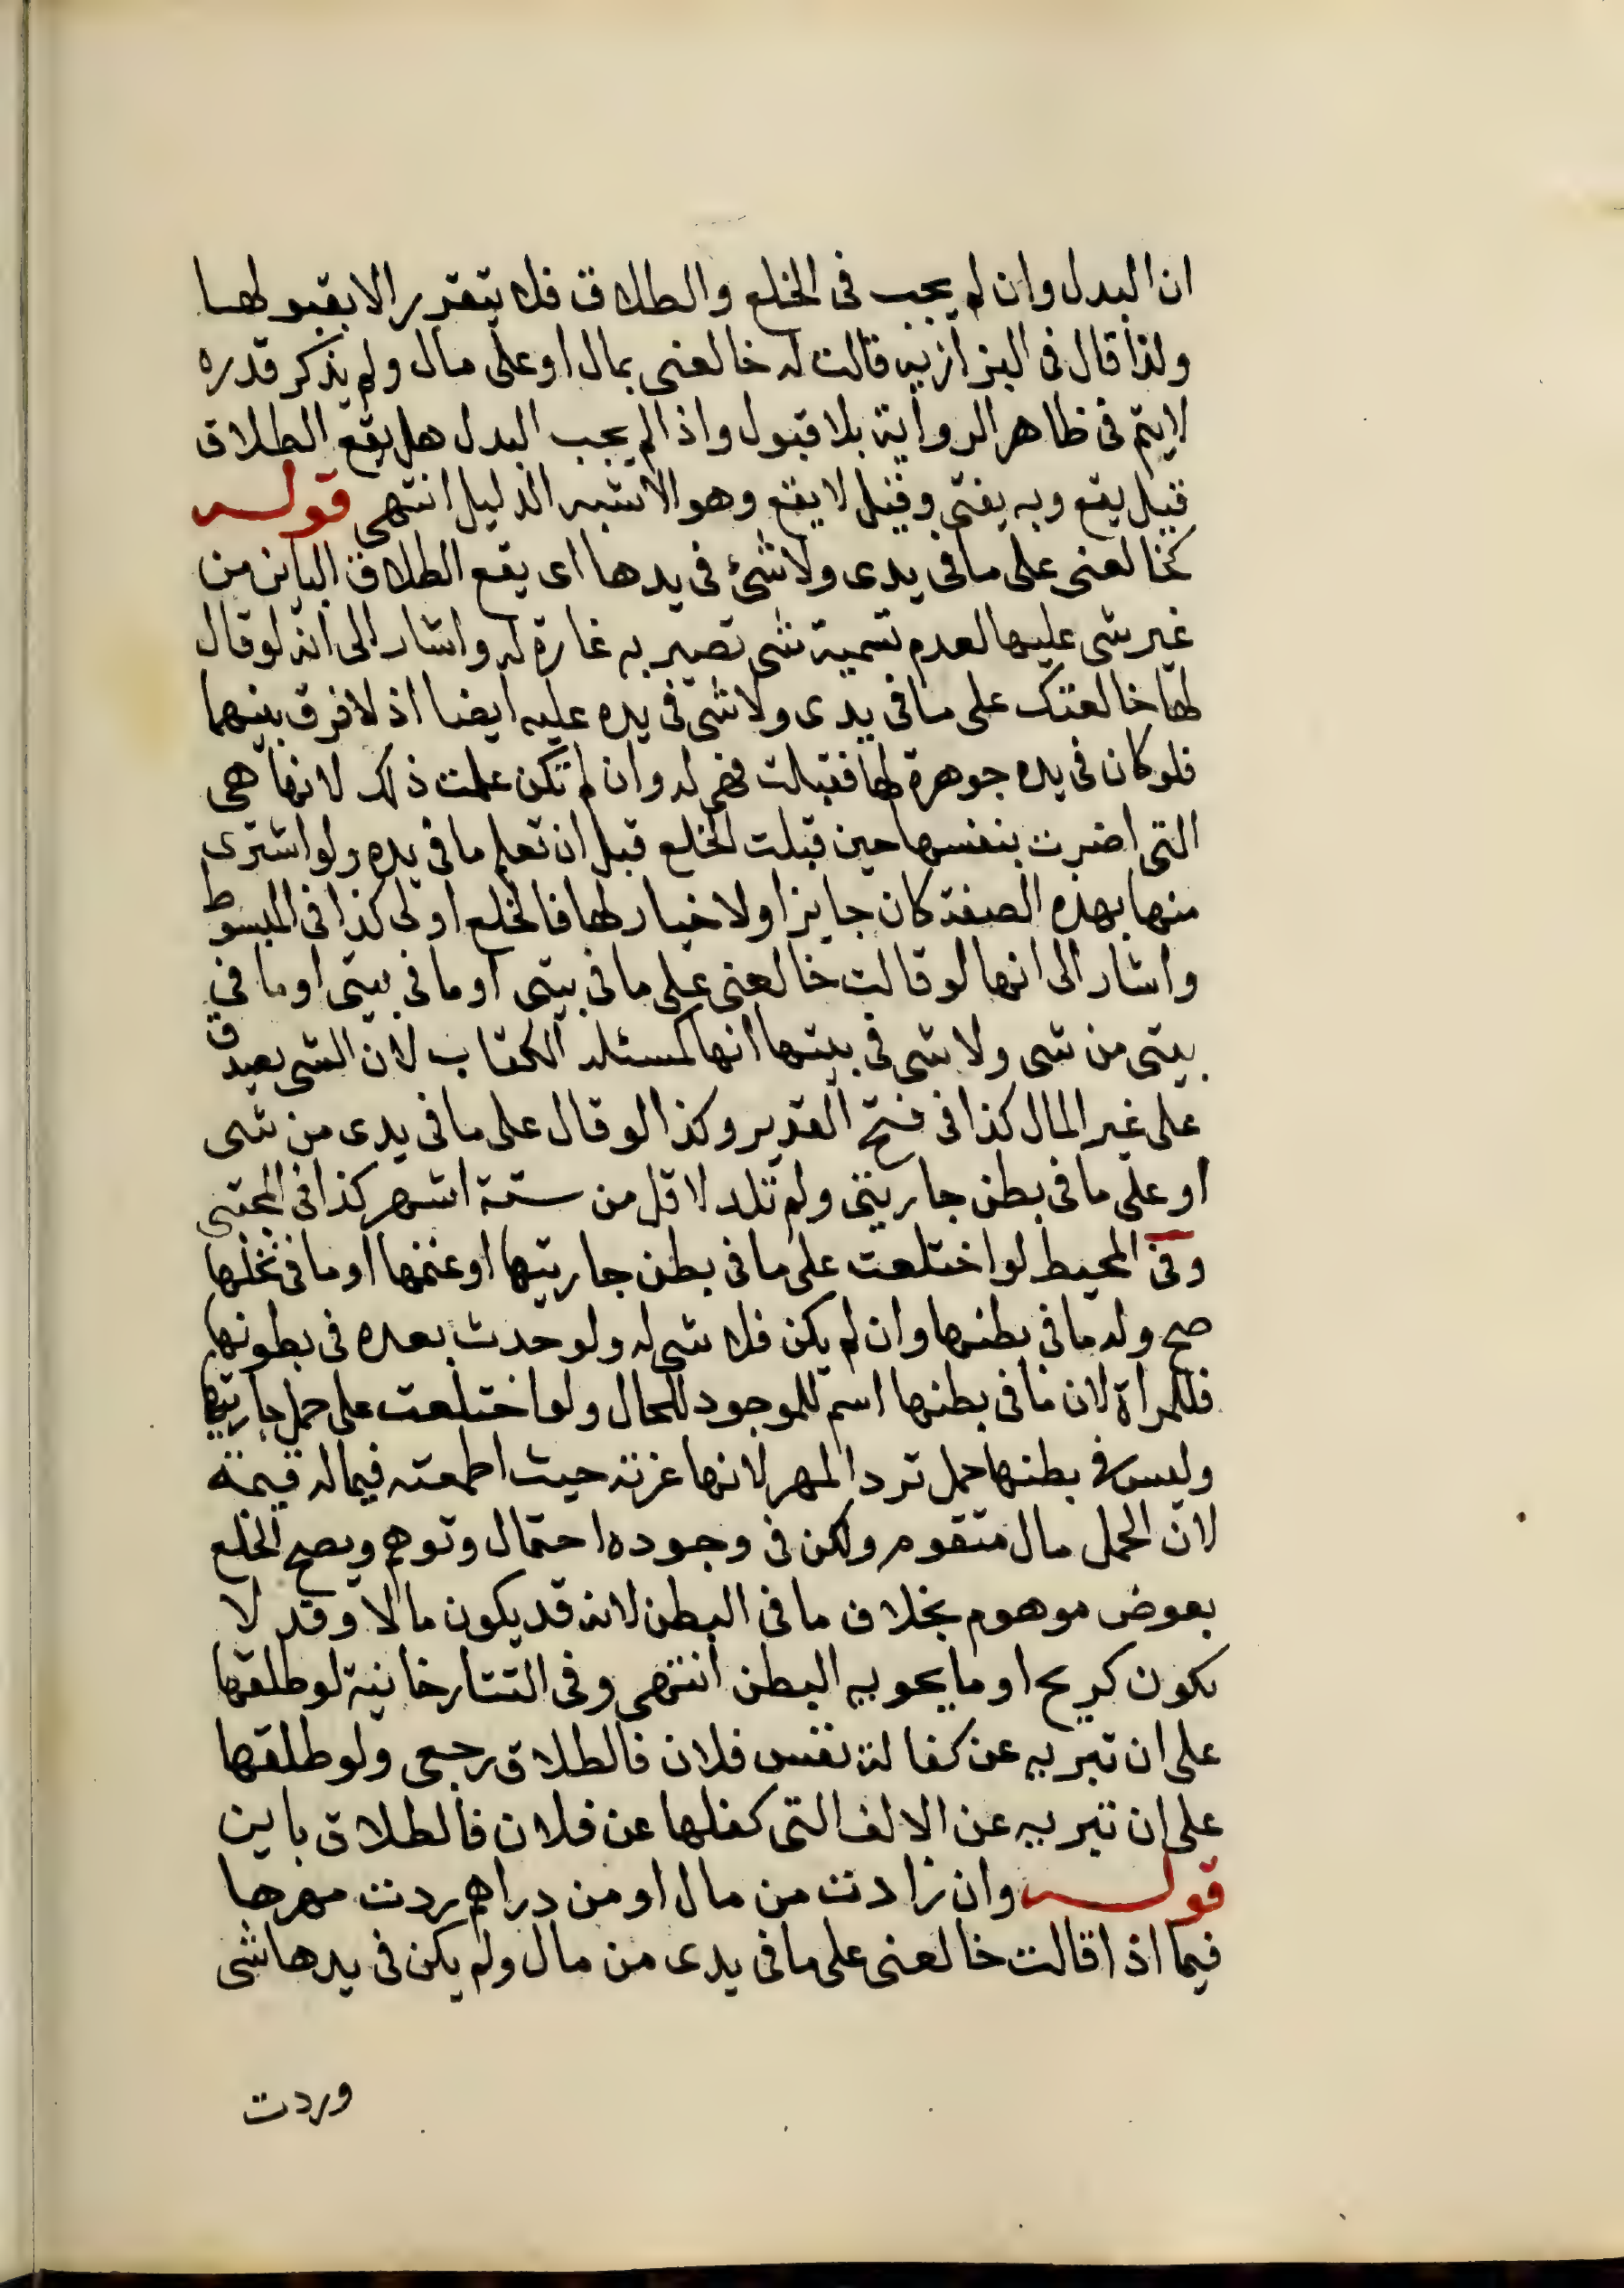 ان البدل وان لم يجب فى الخلع والطلاق فلا يتقرر الا بقبولها
ولذا قال فى البزازيه قالت له خالعنى بمال او على مال ولم يذكر قدره
لايتم فى ظاهر الرواية بلا قبول واذا لم يجب البدل هل يقع الطلاق
قيل يقع وبه يفتى وقيل لا يقع وهو الاشبه الدليل انتهى قوله
كخالعنى على مافى يدى ولا شئ فى يدها اى يقع الطلاق الباين من
غير شى عليها لعدم تسمية شى تصير به غارة له واشار الى انه لو قال
لها خالعتك على مافى يدى ولا شى فى يده عليه ايضا اذ لا فرق بينهما
فلو كان فى يده جوهرة لها فقبلت فهى له وان لم تكن علمت ذلك لانها هى
التى اضرت بنفسها حين قبلت الخلع قبل ان تعلم ما فى يده ولو اشترى
منها بهذه الصفة كان جايزا ولا خيار لها فالخلع اولى كذا فى المبسوط
واشار الى انها لو قالت خالعنى على ما فى بيتى او ما فى بيتى او ما فى
بيتى من شى ولا شى فى بيتها انها كمسئلة الكتاب لان الشى يصدق
على غير المال كذا فى فتح القدير وكذا لو قال على ما فى يدى من شى
او على ما فى بطن جاريتى ولم تلد لاقل من ستة اشهر كذا فى المجتبى
وفى المحيط لو اختلعت على ما فى بطن جاريتها او غنمها او ما فى نخلها
صح وله ما فى بطنها وان لم يكن فلا شى له ولو حدث بعده فى بطونها
فللمراة لان ما فى بطنها اسم للموجود للحال ولو اختلعت على حمل جاريتها
وليس فى بطنها حمل ترد المهر لانها غرته حيث اطمعته فيما له قيمة
لان الحمل مال متقوم ولكن فى وجوده احتمال وتوهم ويصح الخلع
بعوض موهوم بخلاف ما فى البطن لانه قد يكون مالا وقد لا
يكون كريح او ما يحويه البطن انتهى وفى التتارخانية لو طلقها
على ان تبريه عن كفالة نفس فلان فالطلاق رجعى ولو طلقها
على ان تبريه عن الالف التى كفلها عن فلان فالطلاق باين
قوله وان زادت من مال او من دراهم ردت مهرها
فيما اذا قالت خالعنى على ما فى يدى من مال ولم يكن فى يدها شى
وردت